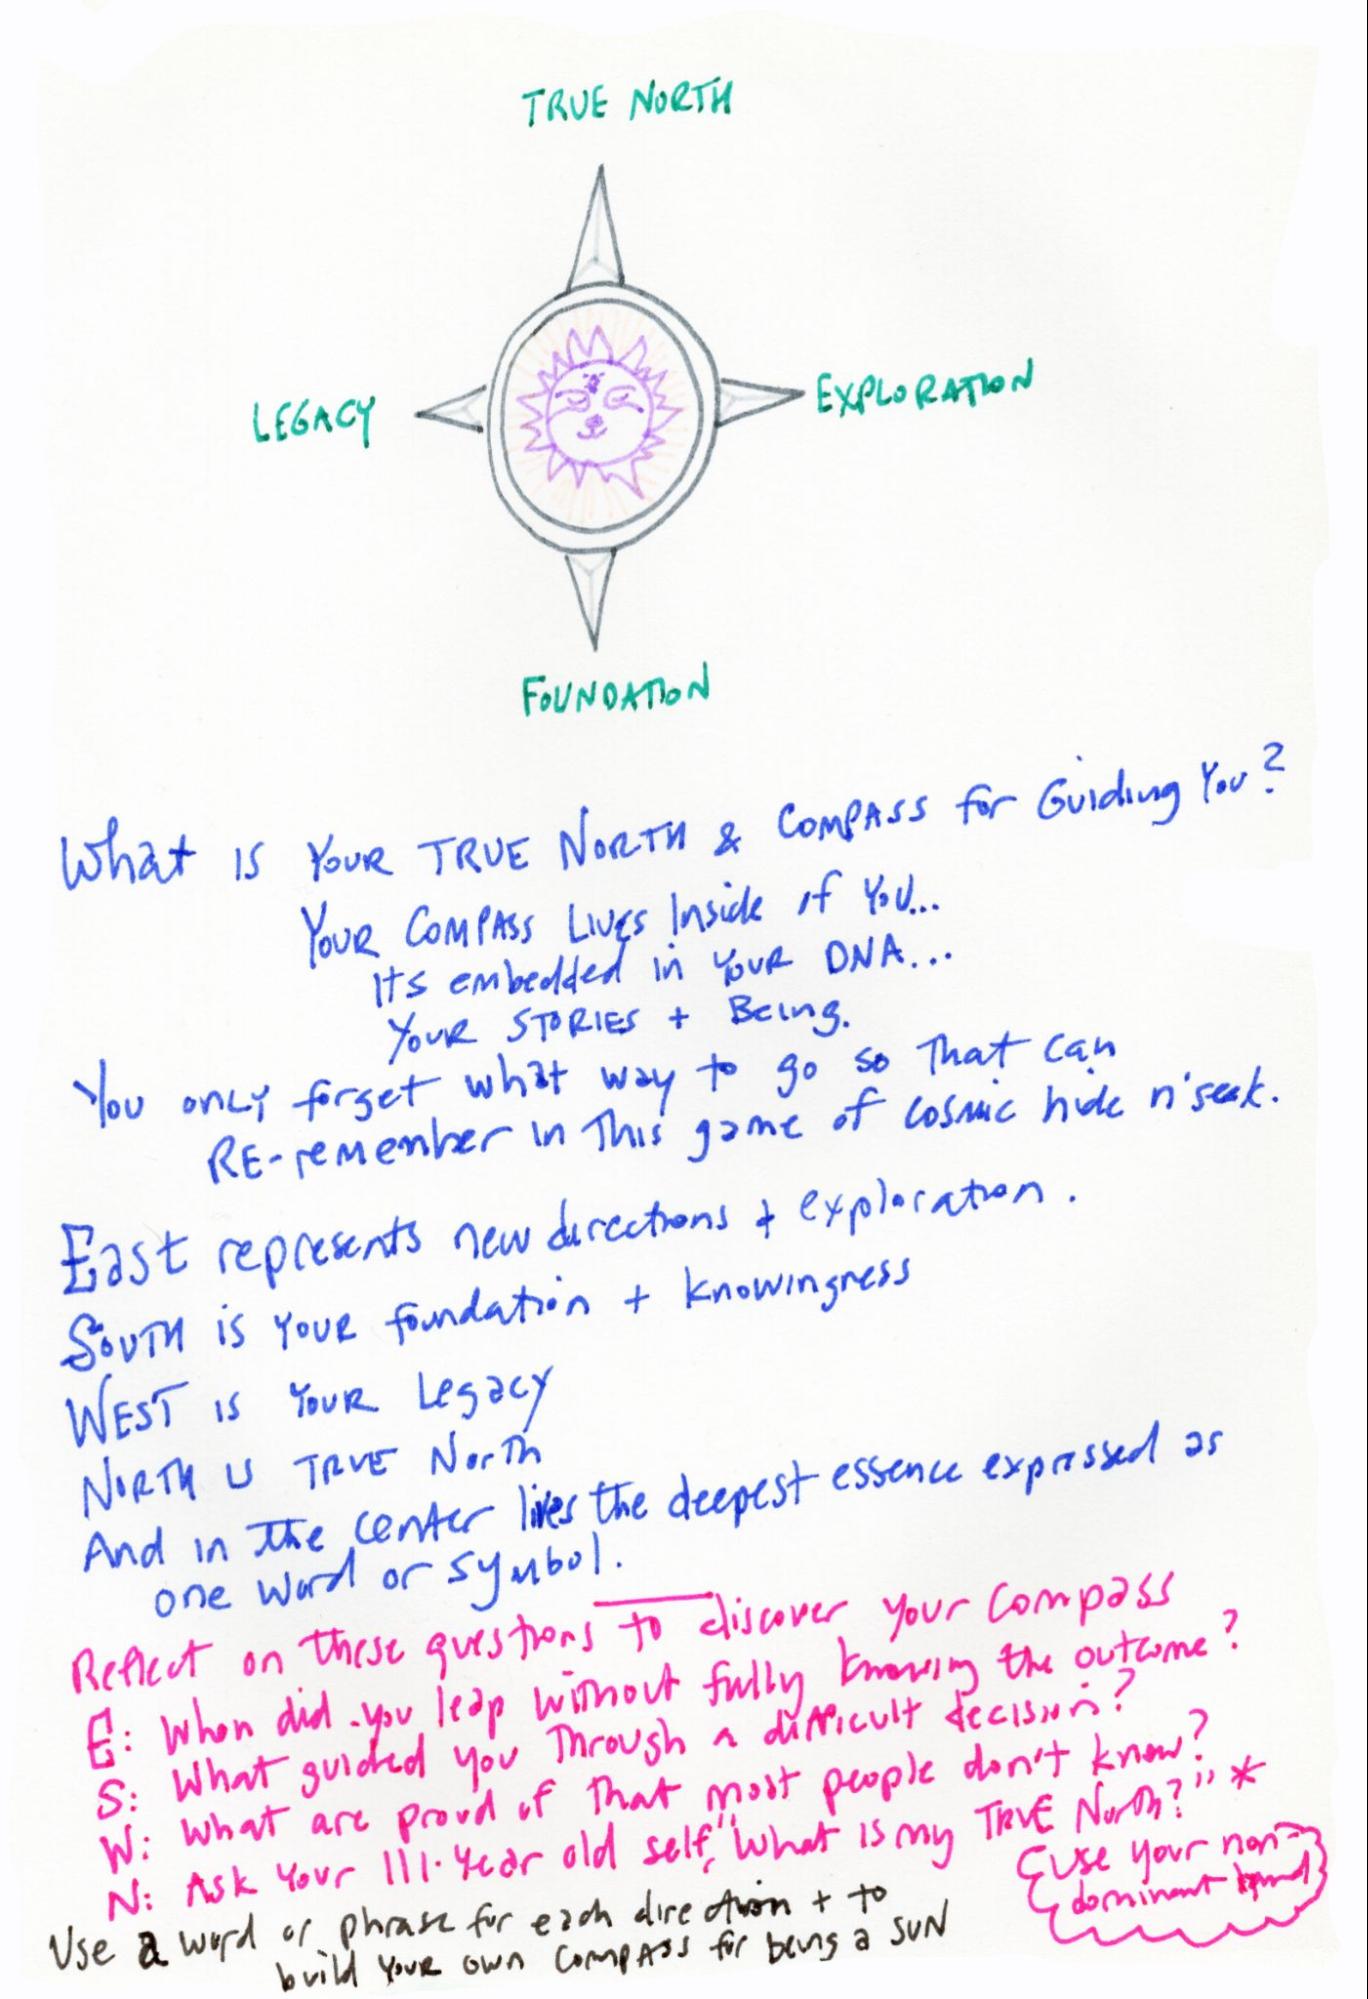 TRUE NORTH
LEGACY
EXPLORATION
FOUNDATION
What IS YOUR TRUE NORTH & COMPASS for Guiding You?
YOUR COMPASS LIVES Inside of YOU...
Its embedded in YOUR DNA...
YOUR STORIES + Being.
You only forget what way to go so That can
RE-remember in This game of cosmic hide n'seek.
East represents new directions + exploration.
SOUTH is YOUR foundation + knowingness
WEST IS YOUR Legacy
NORTH IS TRUE North
And in the center lives the deepest essence expressed as
one word or symbol.
Reflect on these questions to discover your Compass
E: When did you leap without fully knowing the outcome?
S: What guided you Through a difficult decision?
W: What are proud of that most people don't know?
N: Ask Your 111-year old self, "What is my TRUE North?" *
Use your non-
dominant hand
Use a word or phrase for each direction + to
build your own Compass for being a SUN